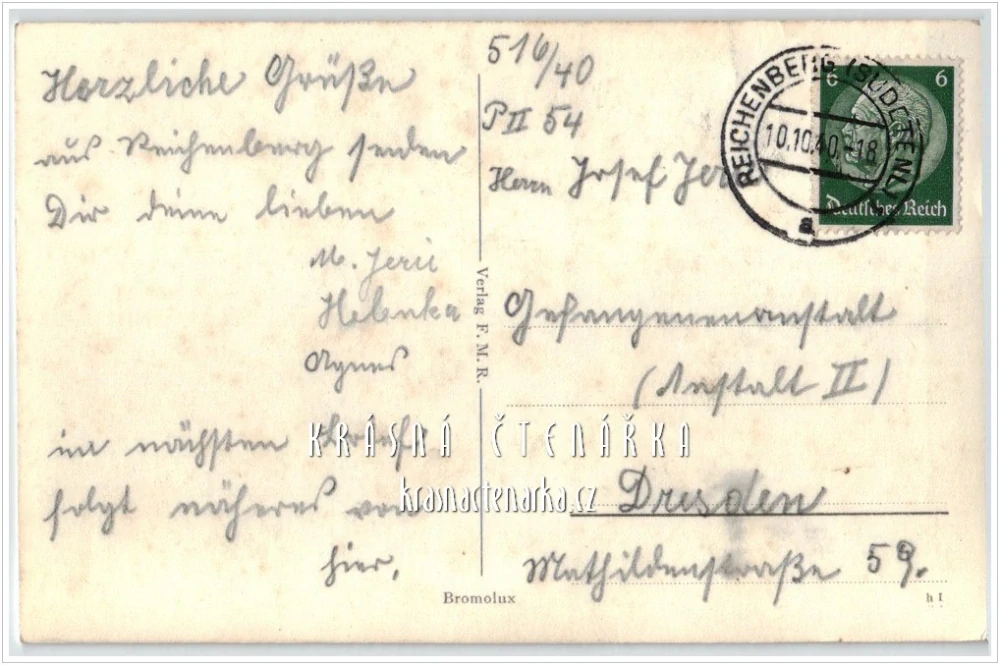 Herzliche Grüße
aus Reichenberg senden
Dir deine lieben
M. Jerii
Helenka
Agnes
im nächsten Brief
folgt näheres von
hier.
516/40
P II 54
Herrn Josef
Gefangenenanstalt
(Anstalt II)
Dresden
Mathildenstraße 59.
REICHENBERG (SUDETENL)
10.10.40.-18
a
6 6
Deutsches Reich
Verlag F. M. R.
Bromolux
h I
KRÁSNÁ ČTENÁŘKA
krasnactenarka.cz